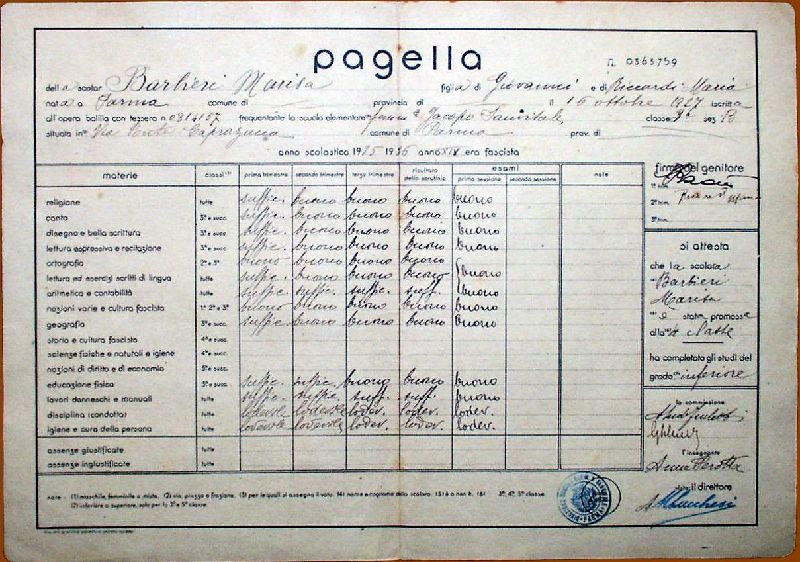 pagella
n. 0365759
della scolar Barbieri Marisa figlia di Giovanni e di Riccardi Maria
nata a Parma comune di provincia di il 16 ottobre 1927 iscritta
all'opera balilla con tessera n. 0314157 frequentante la scuola elementare Jacopo Sanvitale classe 3a sez B
situata in Via Ponte Caprazucca comune di Parma prov. di
anno scolastico 1935 1936 anno XIV era fascista
materie classi prima trimestre secondo trimestre terzo trimestre risultato dello scrutinio esami prima sessione seconda sessione note
religione tutte suffic. buono buono buono buono
canto 3a e succ. suffic. buono buono buono buono
disegno e bella scrittura tutte suffic. buono buono buono buono
lettura espressiva e recitazione 3a e succ. suffic. buono buono buono buono
ortografia 2a e 3a buono buono buono buono
lettura ed esercizi scritti di lingua tutte suffic. buono buono buono buono
aritmetica e contabilità tutte suffic. suffic. suff. suff. buono
nozioni varie e cultura fascista 1a 2a e 3a buono buono buono buono buono
geografia 3a e succ. suffic. buono buono buono buono
storia e cultura fascista 4a e succ.
scienze fisiche e naturali e igiene 4a e succ.
nozioni di diritto e di economia 5a e succ.
educazione fisica 3a e succ. suffic. suffic. buono buono buono
lavori donneschi e manuali tutte suffic. suffic. suff. suff. buono
disciplina (condotta) tutte lodevole lodevole loder. loder. lodev.
igiene e cura della persona tutte lodevole lodevole loder. loder. loder.
assenze giustificate tutte
assenze ingiustificate tutte
note - (1) maschile, femminile o mista. (2) via, piazza o frazione. (3) per le quali si assegna il voto. (4) nome e cognome dello scolaro. (5) è o non è. (6) 3a, 4a, 5a classe.
(7) inferiore o superiore, solo per la 3a e 5a classe.
firma del genitore
1° trim.
2° trim.
3° trim.
si attesta
che la scolara
Barbieri
Marisa
è stata promossa
alla 4a classe
ha completato gli studi del
grado inferiore
la commissione
l'insegnante
Anna Perotta
il direttore